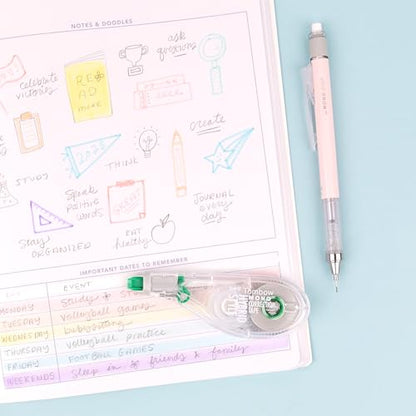 NOTES & DOODLES
celebrate
victories
READ
MORE
ask
questions
create
2023
THINK
STUDY
Speak
positive
words
GREAT
JOURNAL
every
day
Stay
ORGANIZED
EAT
healthy
IMPORTANT DATES TO REMEMBER
EVENT
MONDAY Study
TUESDAY Volleyball games
WEDNESDAY babysitting
THURSDAY Volleyball practice
FRIDAY FOOTBALL GAMES
WEEKENDS Sleep in friends & family
Tombow
MONO
CORRECTION
TAPE
MONO